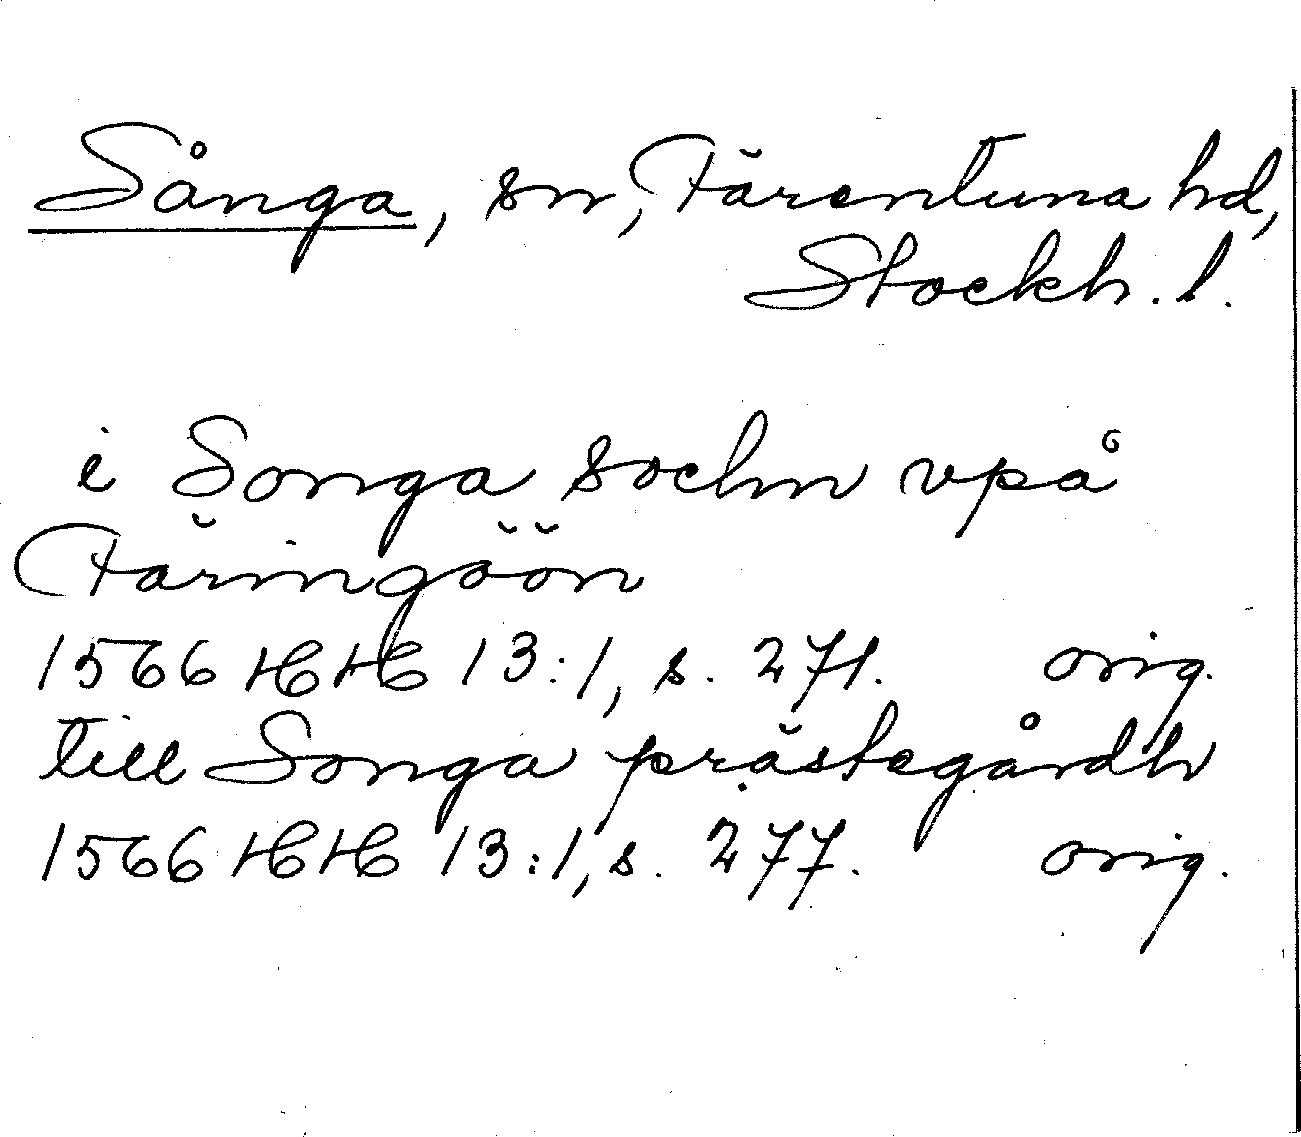 Sånga, sn, Färentuna hd,
Stockh. l.
i Songa sochn vpå
Färingöön
1566 HH 13:1, s. 271. orig.
till Songa prästegårdh
1566 HH 13:1, s. 277. orig.